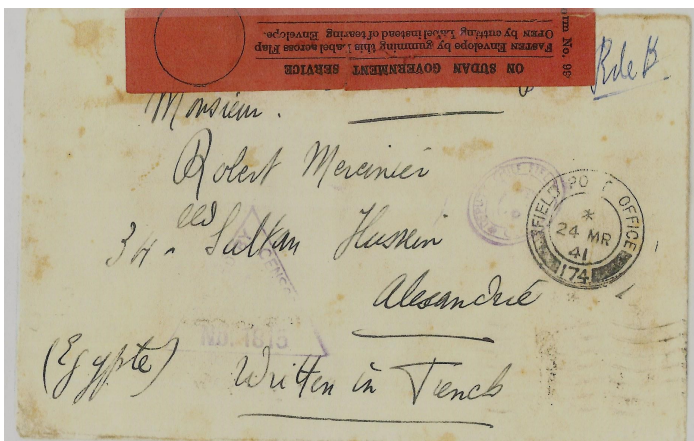 ON SUDAN GOVERNMENT SERVICE
FASTEN Envelope by gumming this Label across Flap
OPEN by cutting Label instead of tearing Envelope.
No. 99
R de B
Monsieur.
Robert Mercinier
34 - Sultan Hussein
Alexandrie
(Egypte)
Written in French
FIELD POST OFFICE
*
24 MR
41
174